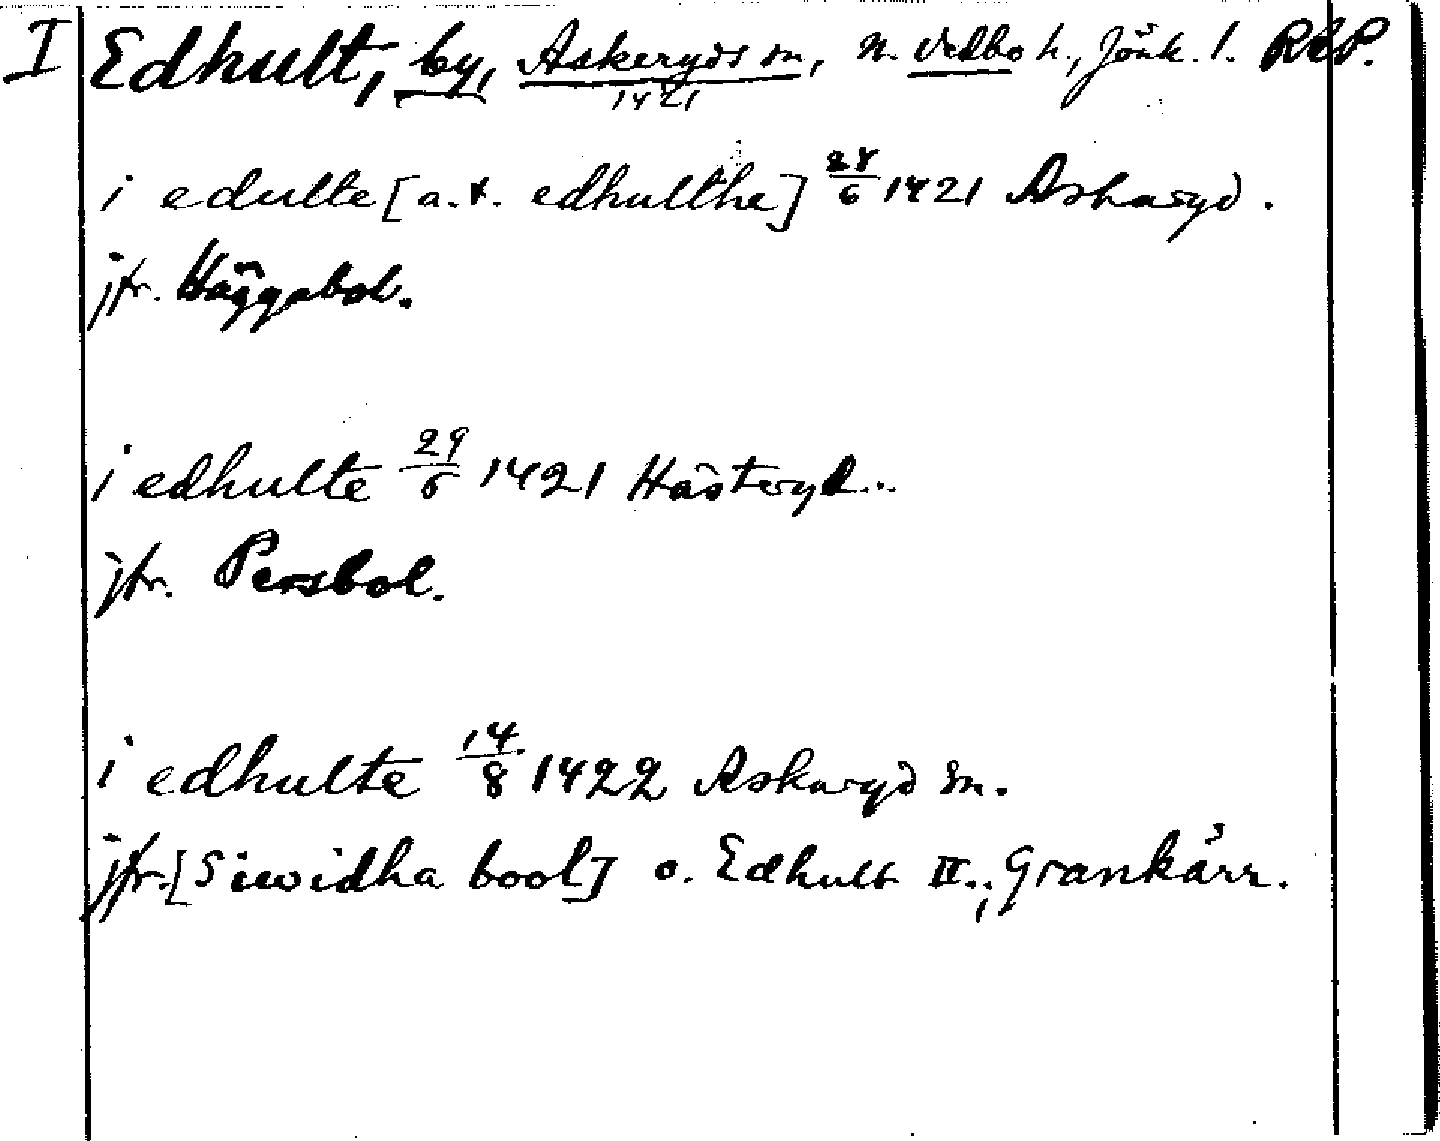 I Edhult, by, Askeryds sn, N. Vedbo h., Jönk. l. RAP.
1421
i edulte [a.t. edhulthe] 28/6 1421 Askaryd.
jfr. Häggebol.
i edhulte 29/6 1421 Hästeryd..
jfr. Persbol.
i edhulte 14/8 1422 Askaryd sn.
jfr. [Siwidha bool] o. Edhult II., Grankärr.